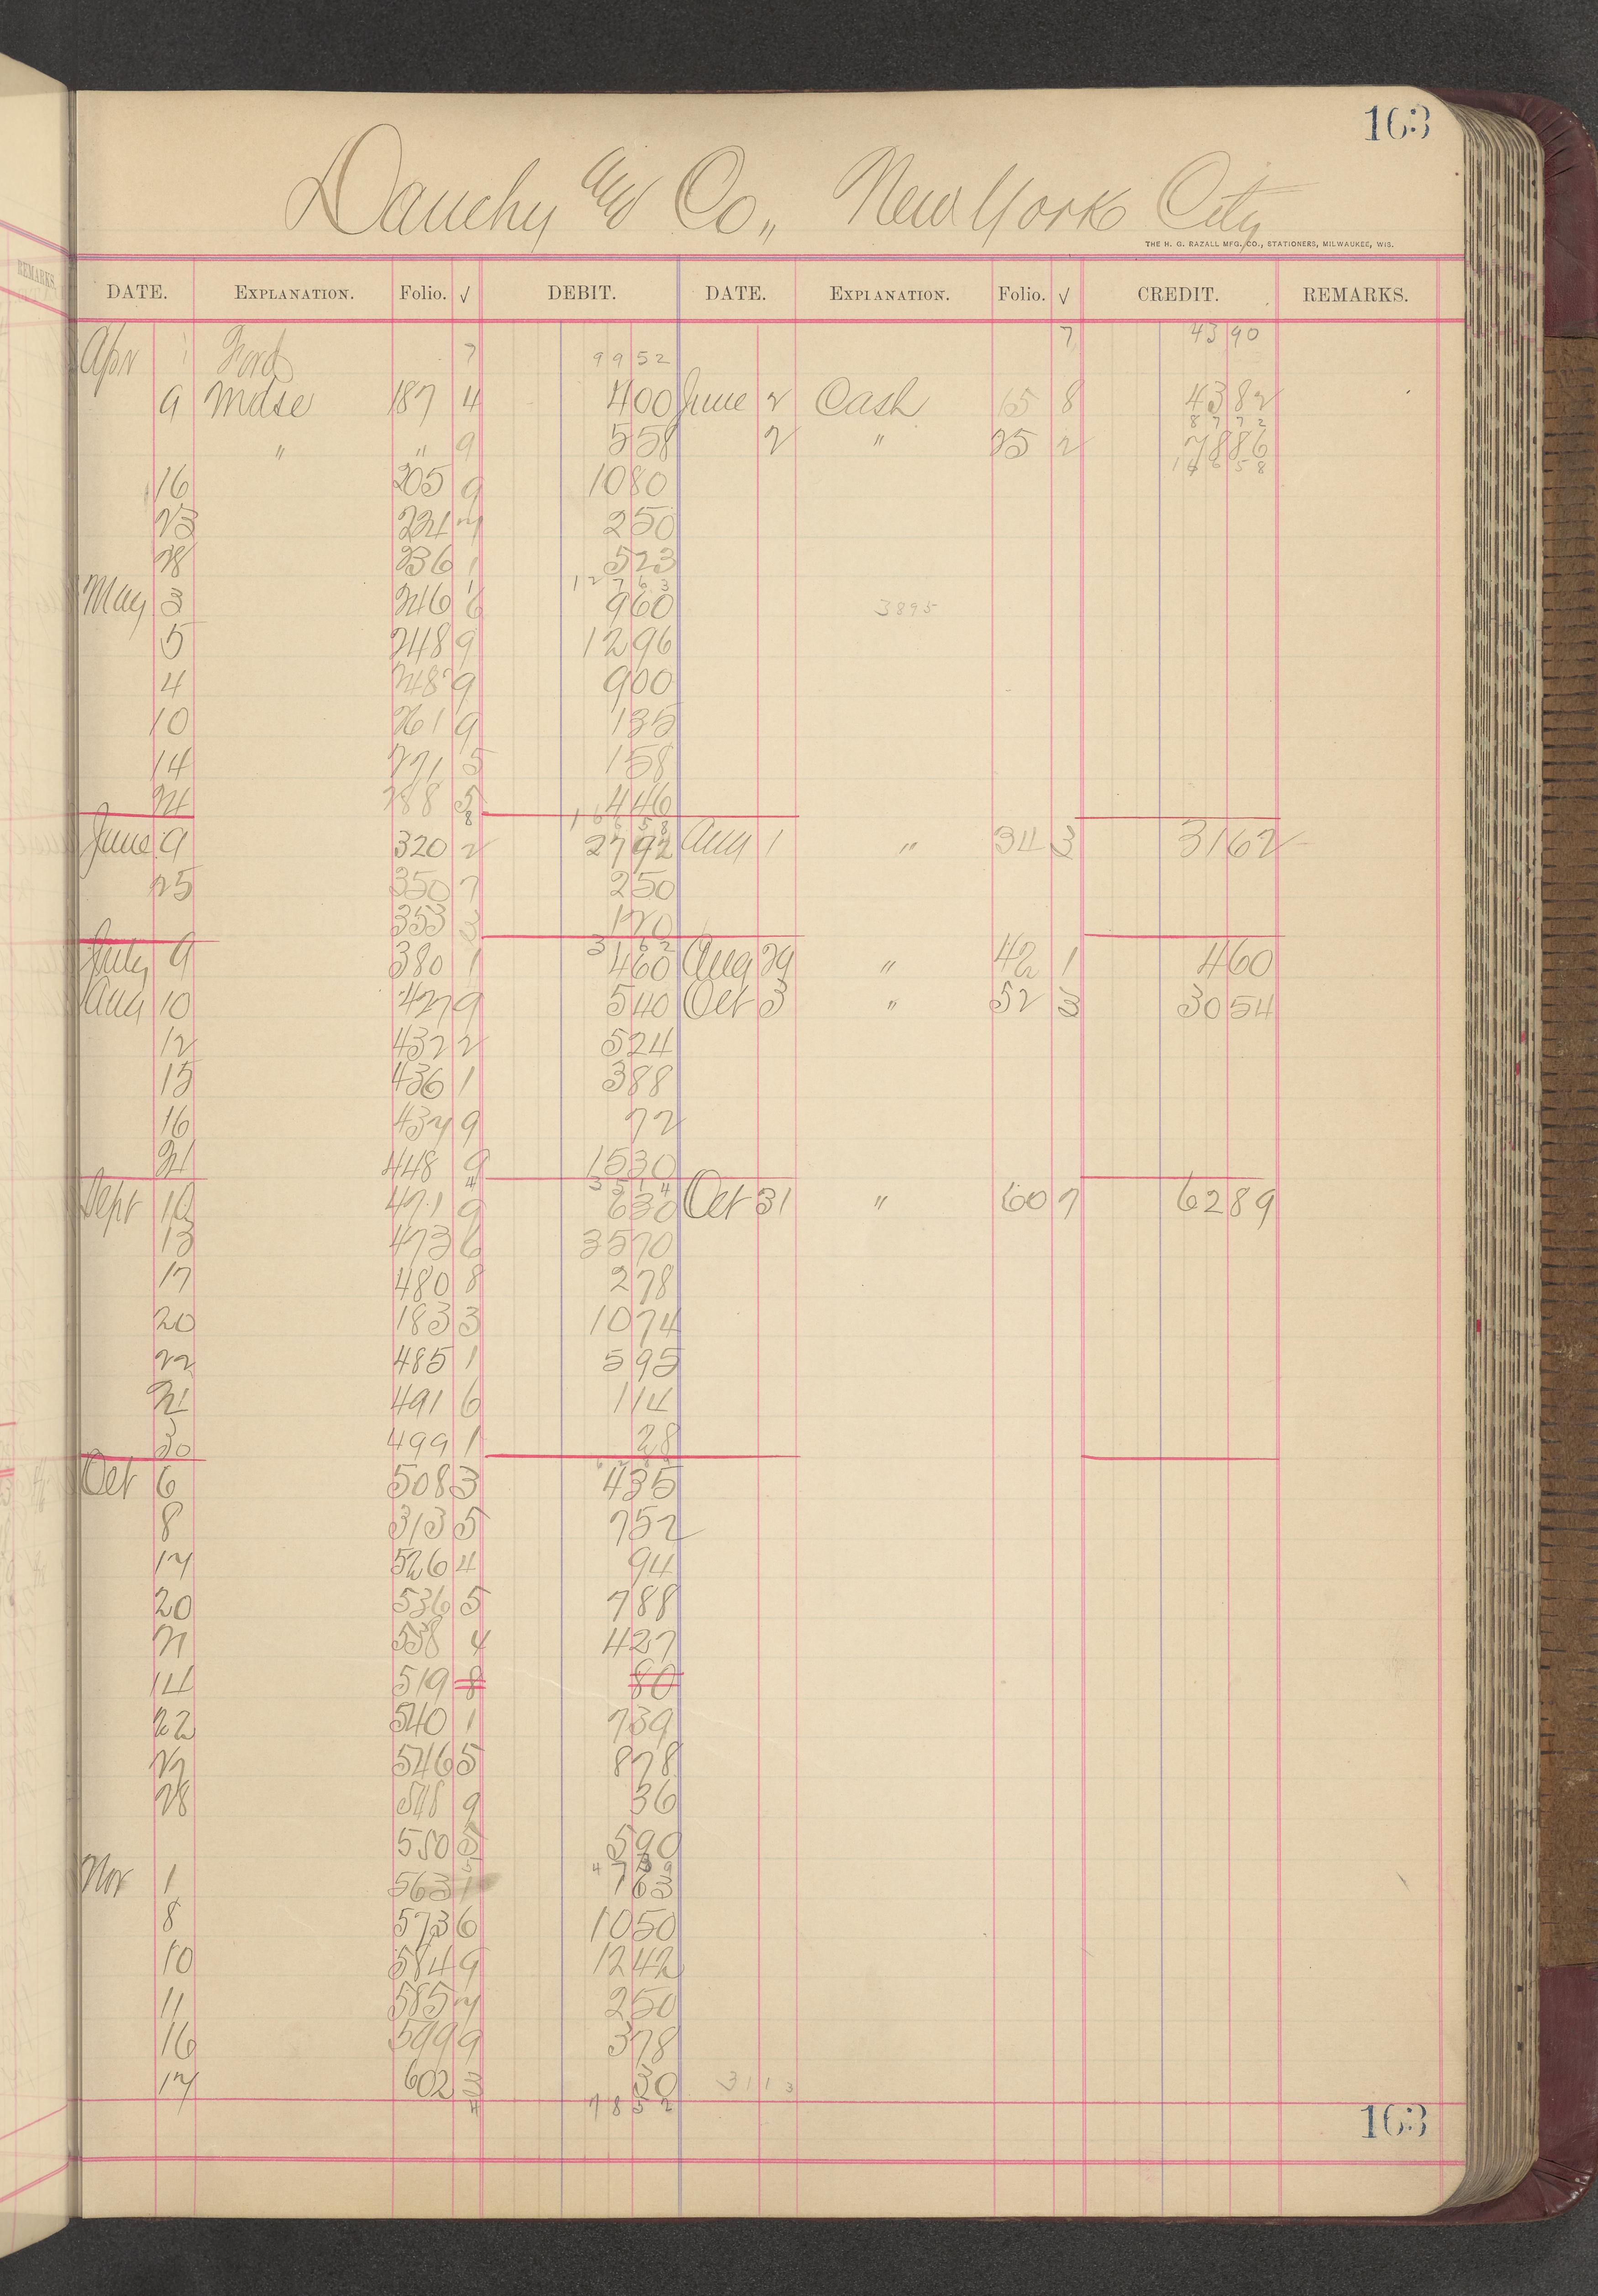 163
Dauchy and Co., New York City
THE H. G. RAZALL MFG. CO., STATIONERS, MILWAUKEE, WIS.
REMARKS.
DATE. EXPLANATION. Folio. √ DEBIT. DATE. EXPLANATION. Folio. √ CREDIT. REMARKS.
7 43 90
Apr 1 Ford 7 99 52
9 Mdse 187 4 4 00 June 2 Cash 15 8 43 82
87 72
" " 9 5 58 2 " 25 2 78 86
16 205 9 10 80
23 224 7 2 50
28 236 1 5 23
127 63
May 3 246 6 9 60 3895
5 248 9 12 96
4 248 9 9 00
10 261 9 1 35
14 271 5 1 58
24 288 5 4 46
8 166 58
June 9 320 2 27 92 Aug 1 " 34 3 31 62
25 350 7 2 50
353 3 1 20
31 62
July 9 380 1 4 60 Aug 29 " 42 1 4 60
Aug 10 427 9 5 40 Oct 3 " 52 3 30 54
12 432 2 5 24
15 436 1 3 88
16 437 9 72
21 448 9 15 30
4
Sept 10 471 9 6 30 Oct 31 " 60 7 62 89
13 473 6 35 70
17 480 8 2 78
20 183 3 10 74
22 485 1 5 95
24 491 6 1 14
30 499 1 28
Oct 6 508 3 4 35
8 313 5 7 52
17 526 4 94
20 536 5 7 88
21 538 4 4 27
14 519 8 80
22 540 1 7 39
27 546 5 8 78
28 548 9 36
550 5 5 90
47 39
Nov 1 563 1 1 63
8 573 6 10 50
10 584 9 12 42
11 585 7 2 50
16 599 9 3 78
17 602 3 30 3113
4 78 52
163